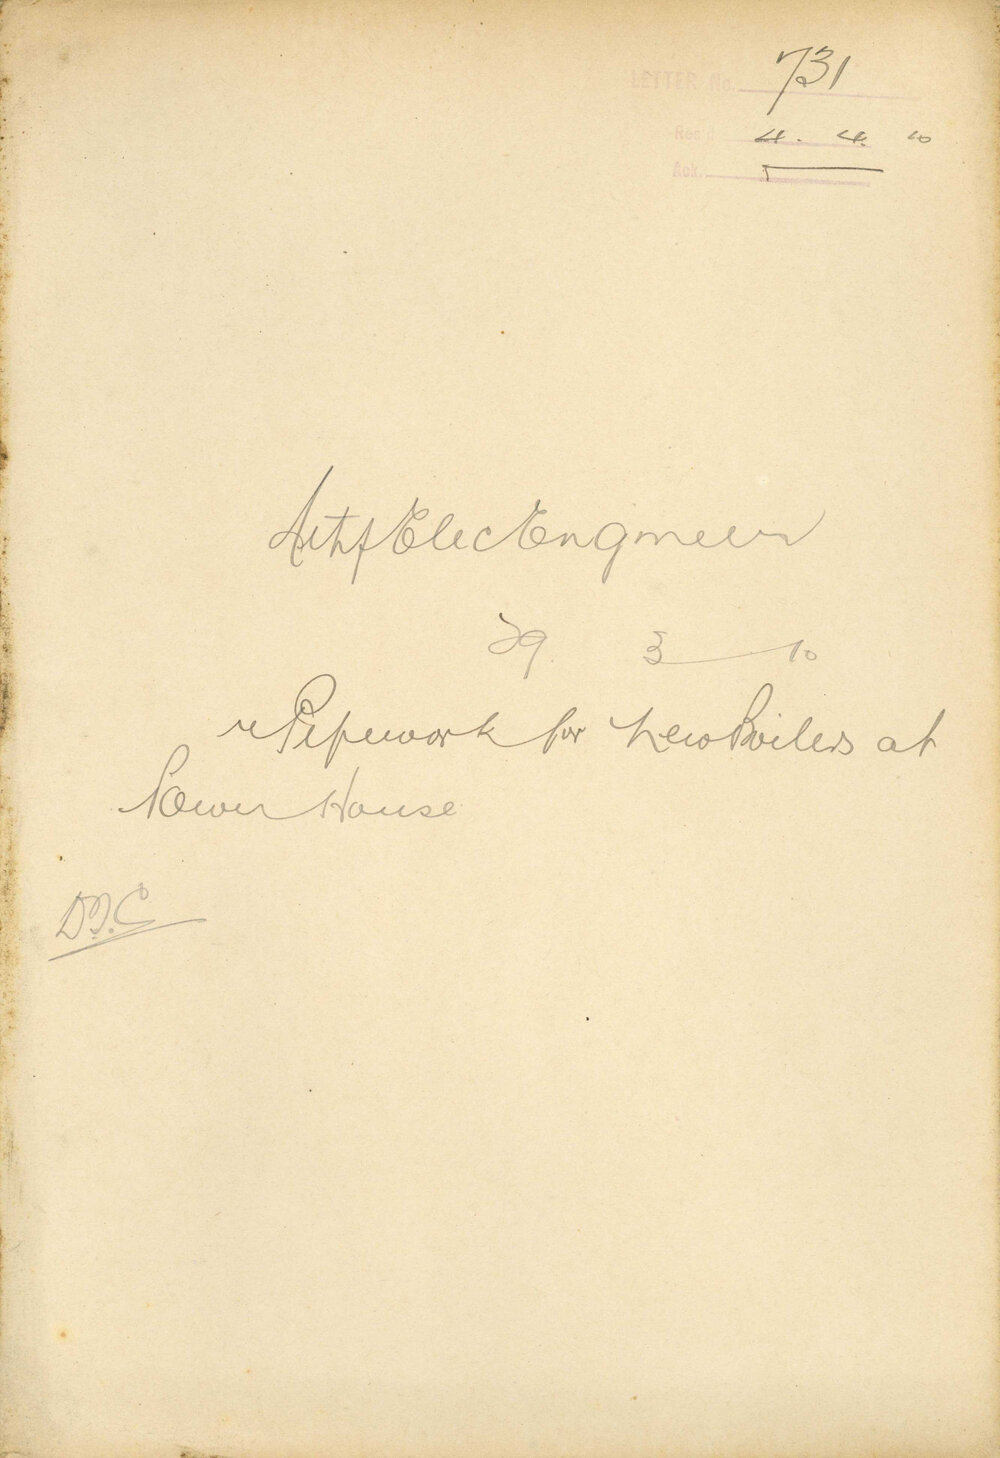 LETTER No. 731
Rec. 4. 4. 10
Ack.
Elec Engineer
29. 3 10
re Pipework for New Boilers at
Power House